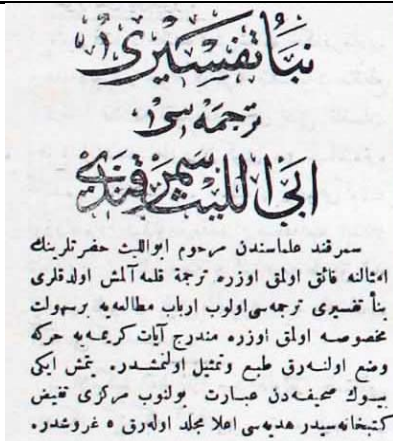 نبأ تفسيرى
ترجمه سى
ابى الليث سمرقندى
سمرقند علماسندن مرحوم ابوالليث حضرتلرينك
امثالنه فائق اولمق اوزره ترجمة قلمه آلمش اولدقلرى
بنأ تفسيرى ترجمه سى اولوب ارباب مطالعه يه برسهولت
مخصوصه اولمق اوزره مندرج آيات كريمه يه حركه
وضع اولنه رق طبع وتمثيل اولنمشدر. يتمش ايكى
بيوك صحيفه دن عبارت بولنوب مركزى تفيض
كتبخانه سيدر هديه سى اعلا مجلد اوله رق ٥ غروشدر.